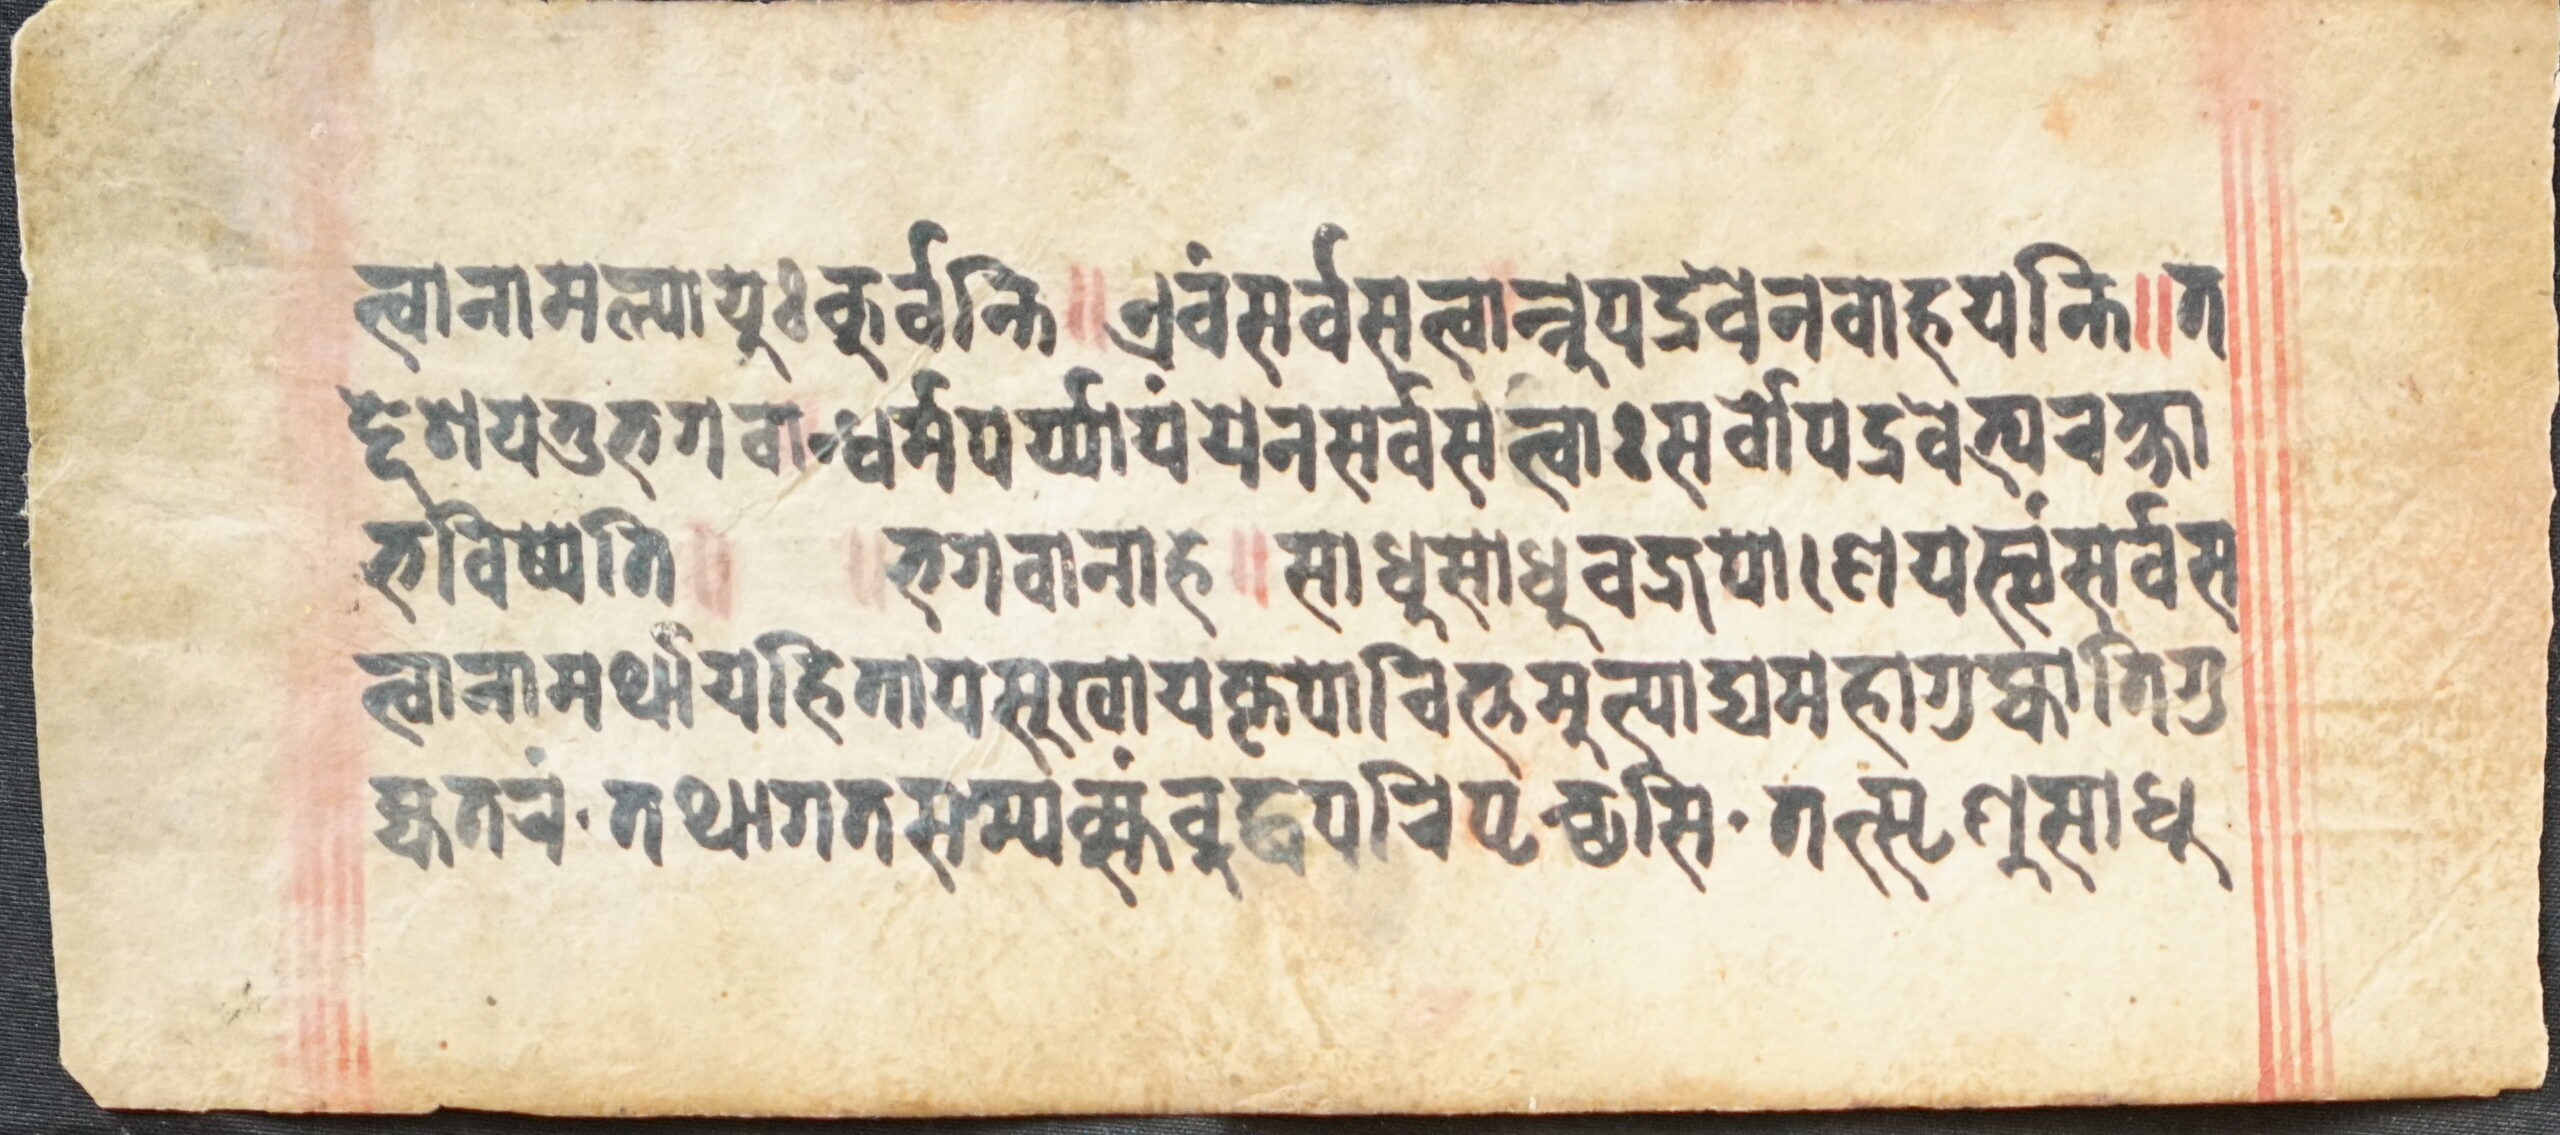 त्वानामल्पायुः कुर्वन्ति ॥ एवं सर्वसत्वानुपद्रवेनवाहयन्ति ॥ त
द्देशयतु भगवान्धर्मपर्य्यायं येन सर्वसत्वाः सर्वोपद्रवेत्यरक्षा
भविष्यति ॥ ॥ भगवानाह ॥ साधु साधु वज्रपाणे यस्त्वं सर्वस
त्वानामर्थाय हिताय सुखाय कृपाचित्तमुत्पाद्य महागुह्यातिगु
ह्यतरं · तथागतसम्यक्संबुद्ध परिपृच्छसि · तत्सृणु साधु